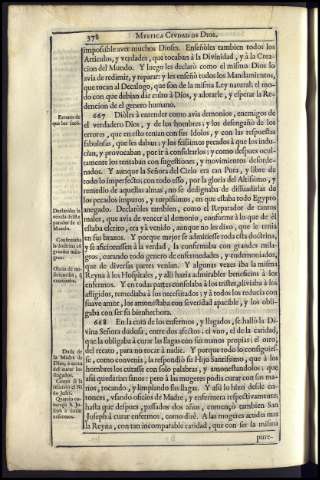 378 MYSTICA CIUDAD DE DIOS.
imposible aver muchos Dioses. Enseñòles tambien todos los
Articulos, y verdades, que tocaban à la Divinidad, y à la Crea-
cion del Mundo. Y luego les declarò como el mismo Dios lo
avia de redimir, y reparar: y les enseñò todos los Mandamientos,
que tocan al Decalogo, que son de la misma Ley natural: el mo-
do con que debian dàr culto à Dios, y adorarle, y esperar la Re-
dencion de el genero humano.
667 Diòles à entender como avia demonios, enemigos de
el verdadero Dios, y de los hombres: y los desengañò de los
errores, que en esto tenian con sus Idolos, y con las respuestas
fabulosas, que les daban: y los feissimos pecados à que los indu-
cian, y provocaban, por ir à consultarlos: y como despues ocul-
tamente los tentaban con sugestiones, y movimientos desorde-
nados. Y aunque la Señora del Cielo era tan Pura, y libre de
todo lo imperfecto; con todo esso, por la gloria del Altissimo, y
remedio de aquellas almas, no se dedignaba de dissuadirlas de
los pecados impuros, y torpissimos, en que estaba todo Egypto
anegado. Declaròles tambien, como el Reparador de tantos
males, que avia de vencer al demonio, conforme à lo que de èl
estaba escrito, era yà venido, aunque no les dixo, que le tenia
en sus brazos. Y porque mejor se admitiesse toda esta doctrina,
y se aficionassen à la verdad; la confirmaba con grandes mila-
gros, curando todo genero de enfermedades, y endemoniados,
que de diversas partes venian. Y algunas vezes iba la misma
Reyna à los Hospitales, y alli hazia admirables beneficios à los
enfermos. Y en todas partes consolaba à los tristes, aliviaba à los
afligidos, remediaba à los necessitados; y à todos los reducia con
suave amor, los amonestaba con severidad apacible, y los obli-
gaba con ser su bienhechora.
668 En la cura de los enfermos, y llagados, se hallò la Di-
vina Señora dudosa, entre dos afectos: el vno, el de la caridad,
que la obligaba à curar las llagas con sus manos propias; el otro,
del recato, para no tocar à nadie. Y porque todo lo consiguies-
se, como convenia, la respondiò su Hijo Santissimo, que à los
hombres los curasse con solo palabras, y amonestandolos; que
assi quedarian sanos: pero à las mugeres podia curar con sus ma-
nos, tocando, y limpiando sus llagas. Y assi lo hizo desde en-
tonces, vsando oficios de Madre, y enfermera respectivamente,
hasta que despues, passados dos años, començò tambien San
Joseph à curar enfermos, como dirè. A las mugeres acudia mas
la Reyna, con tan incomparable caridad, que con ser la misma
pure-
Declaròles la
venida de el Re-
parador de el
Mundo.
Confirmaba
la doctrina cō
grandes mila-
gros.